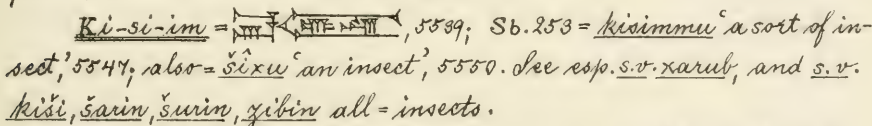 Ki-si-im = , 5539; Sb. 253 = kisimmu 'a sort of in-
sect,' 5547; also = šîxu 'an insect', 5550. See esp. s.v. xarub, and s.v.
kiši, šarin, šurin, zibin all = insects.